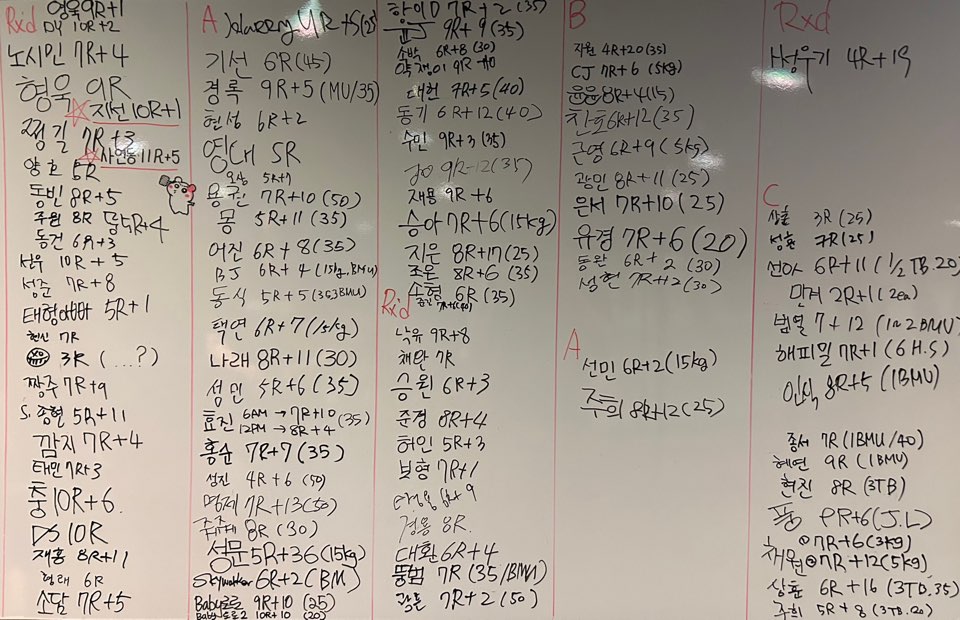 Rxd
영욱 9R+1
DY 10R+2
노시민 7R+4
형욱 9R
☆ 지선 10R+1
찡길 7R+3
☆ 사연동 11R+5
양호 6R
동빈 8R+5
주원 8R
동건 6R+3
10R+5
성준 7R+8
태형아빠 5R+1
현신 7R
3R (....?)
짱주 7R+9
S. 종현 5R+11
깜지 7R+4
태민 7R+3
충 10R+6.
DS 10R
재홍 8R+11
형래 6R
소담 7R+5
A
Harry
기선 6R(45)
경록 9R+5 (MU/35)
현성 6R+2
영대 5R
용권 7R+10 (50)
몽 5R+11 (35)
어진 6R+8(35)
BJ 6R+4 (15kg.BMU)
동식 5R+5
택연 6R+7 (15kg)
나래 8R+11 (30)
성민 5R+6 (35)
효진 6AM → 7R+10 (35)
12PM → 8R+4
홍순 7R+7 (35)
성진 4R+6 (50)
명제 7R+13(50)
8R (30)
성문 5R+36 (15kg)
Skywalker 6R+2 (BM)
Baby로로 9R+10 (25)
Baby로로2 10R+10 (20)
7R+2 (35)
9R+9 (35)
6R+8 (30)
대현 7R+5 (40)
동기 6R+12 (40)
수민 9R+3 (35)
재용 9R+6
승아 7R+6(15kg)
지은 8R+17 (25)
조은 8R+6 (35)
소형 6R (35)
Rxd
낙유 9R+8
채완 7R
승원 6R+3
준경 8R+4
허인 5R+3
보형 7R+1
경용 8R.
대환 6R+4
뚱범 7R (35/BMU)
7R+2 (50)
B
지원 4R+20 (35)
CJ 7R+6 (5kg)
윤윤 8R+4(15)
찬호 6R+12 (35)
근영 6R+9 (5kg)
광민 8R+11 (25)
은서 7R+10 (25)
유경 7R+6 (20)
동완 6R+2 (30)
성현 7R+12 (30)
A
선민 6R+2 (15kg)
주희 8R+12 (25)
Rxd
4R+19
C
상훈 3R (25)
성훈 7R (25)
선아 6R+11 (1/2 TB.20)
만계 2R+1 (2ea)
범열 7+12 (1~2 BMU)
해피밀 7R+1 (6 H.S)
인식 8R+5 (1BMU)
종서 7R (1BMU/40)
혜연 9R (1BMU)
현진 8R (3TB)
(J.L)
채원 ① 7R+6 (3kg)
② 7R+12 (5kg)
상훈 6R+16 (3TD.35)
주희 5R+8 (3TB.20)